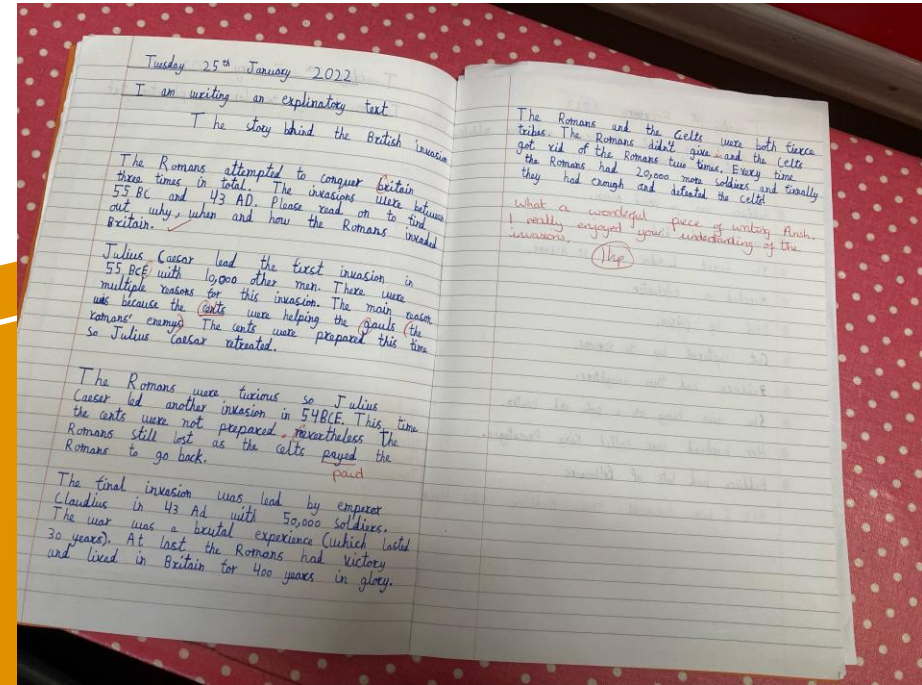 Tuesday 25th January 2022
I am writing an explinatory text
The story bhind the British invasion
The Romans attempted to conquer Britain
three times in total. The invasions were between
55 BC and 43 AD. Please read on to find
out, why, when and how the Romans invaded
Britain.
Julius Caesar lead the first invasion in
55 BCE with 10,000 other men. There were
multiple reasons for this invasion. The main reason
was because the cents were helping the gauls (the
romans' enemys) The cents were prepared this time
so Julius Caesar retreated.
The Romans were furious so Julius
Caeser led another invasion in 54BCE. This time
the cents were not prepared, nevertheless The
Romans still lost as the celts payed the
Romans to go back.
paid
The final invasion was lead by emperor
Claudius in 43 Ad with 50,000 soldiers.
The war was a brutal experience (which lasted
30 years). At last the Romans had victory
and lived in Britain for 400 years in glory.
The Romans and the Celts were both fierce
tribes. The Romans didn't give and the Celts
got rid of the Romans two times. Every time
the Romans had 20,000 more soldiers and finally
they had enough and defeated the Celts!
What a wonderful piece of writing Ansh.
I really enjoyed your understanding of the
invasions.
1hp